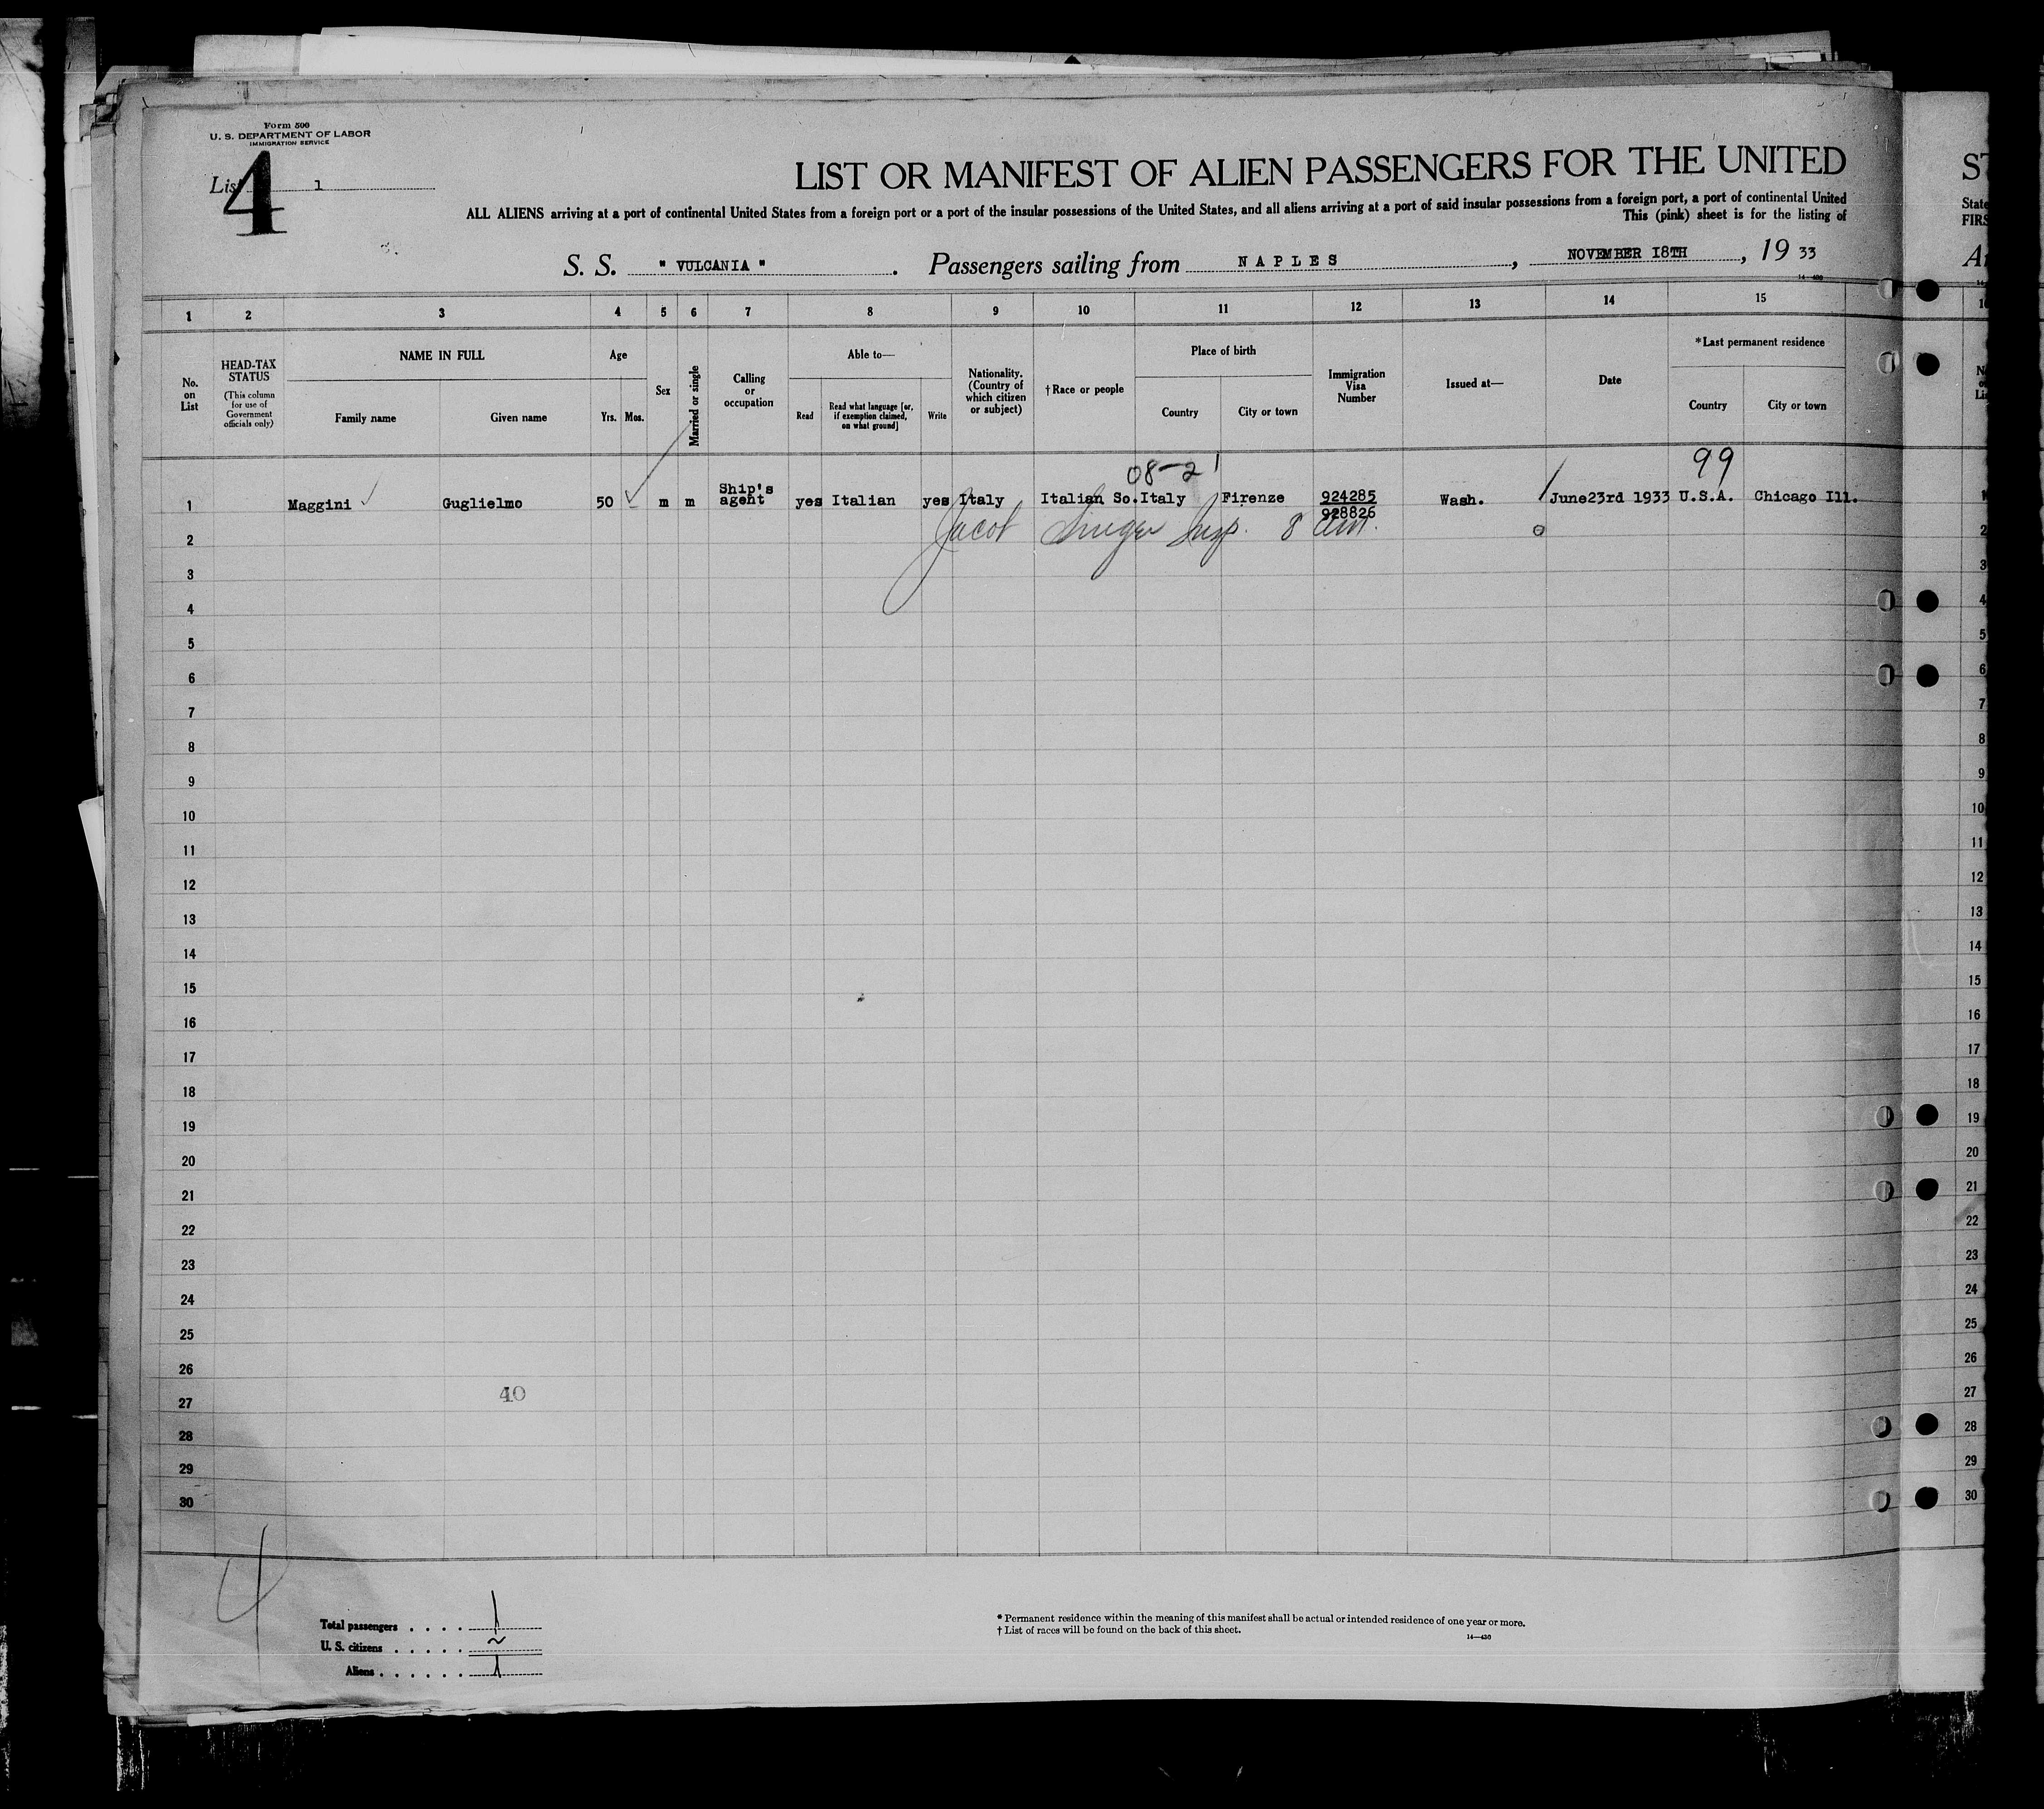 Form 500
U. S. DEPARTMENT OF LABOR
IMMIGRATION SERVICE
List 1
4
LIST OR MANIFEST OF ALIEN PASSENGERS FOR THE UNITED
ALL ALIENS arriving at a port of continental United States from a foreign port or a port of the insular possessions of the United States, and all aliens arriving at a port of said insular possessions from a foreign port, a port of continental United
This (pink) sheet is for the listing of
S. S. " VULCANIA " . Passengers sailing from NAPLES , NOVEMBER 18TH , 19 33
1 2 3 4 5 6 7 8 9 10 11 12 13 14 15
No. on List
HEAD-TAX STATUS
(This column for use of Government officials only)
NAME IN FULL
Family name Given name
Age
Yrs. Mos.
Sex
Married or single
Calling or occupation
Able to—
Read
Read what language [or, if exemption claimed, on what ground]
Write
Nationality. (Country of which citizen or subject)
†Race or people
Place of birth
Country City or town
Immigration Visa Number
Issued at—
Date
*Last permanent residence
Country City or town
08-2 99
1 Maggini Guglielmo 50 m m Ship's agent yes Italian yes Italy Italian So. Italy Firenze 924285 Wash. June23rd 1933 U.S.A. Chicago Ill.
928826
2 Jacob Singer Insp. 8
3
4
5
6
7
8
9
10
11
12
13
14
15
16
17
18
19
20
21
22
23
24
25
26
27
40
28
29
30
4
Total passengers . . . . 1
U. S. citizens . . . . . ~
Aliens . . . . . . 1
* Permanent residence within the meaning of this manifest shall be actual or intended residence of one year or more.
† List of races will be found on the back of this sheet.
14—430
ST
State
FIRS